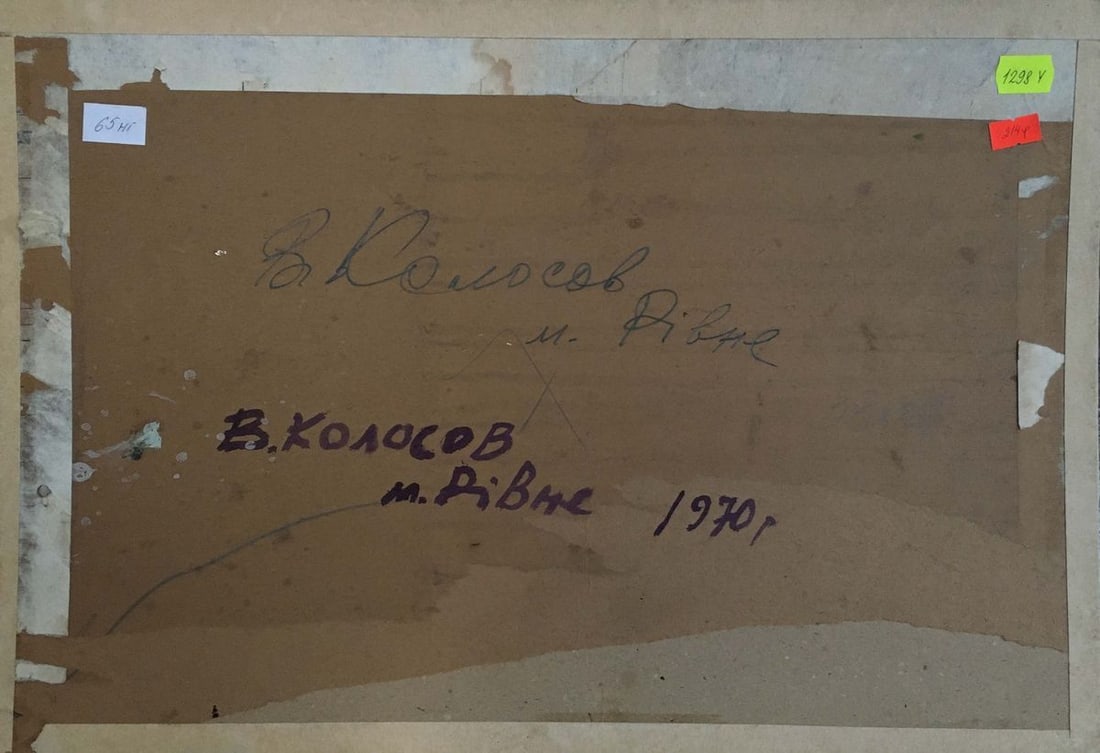 1298 У
65 нг
В. Колосов
м. Рівне
В. Колосов
м. Рівне 1970 р